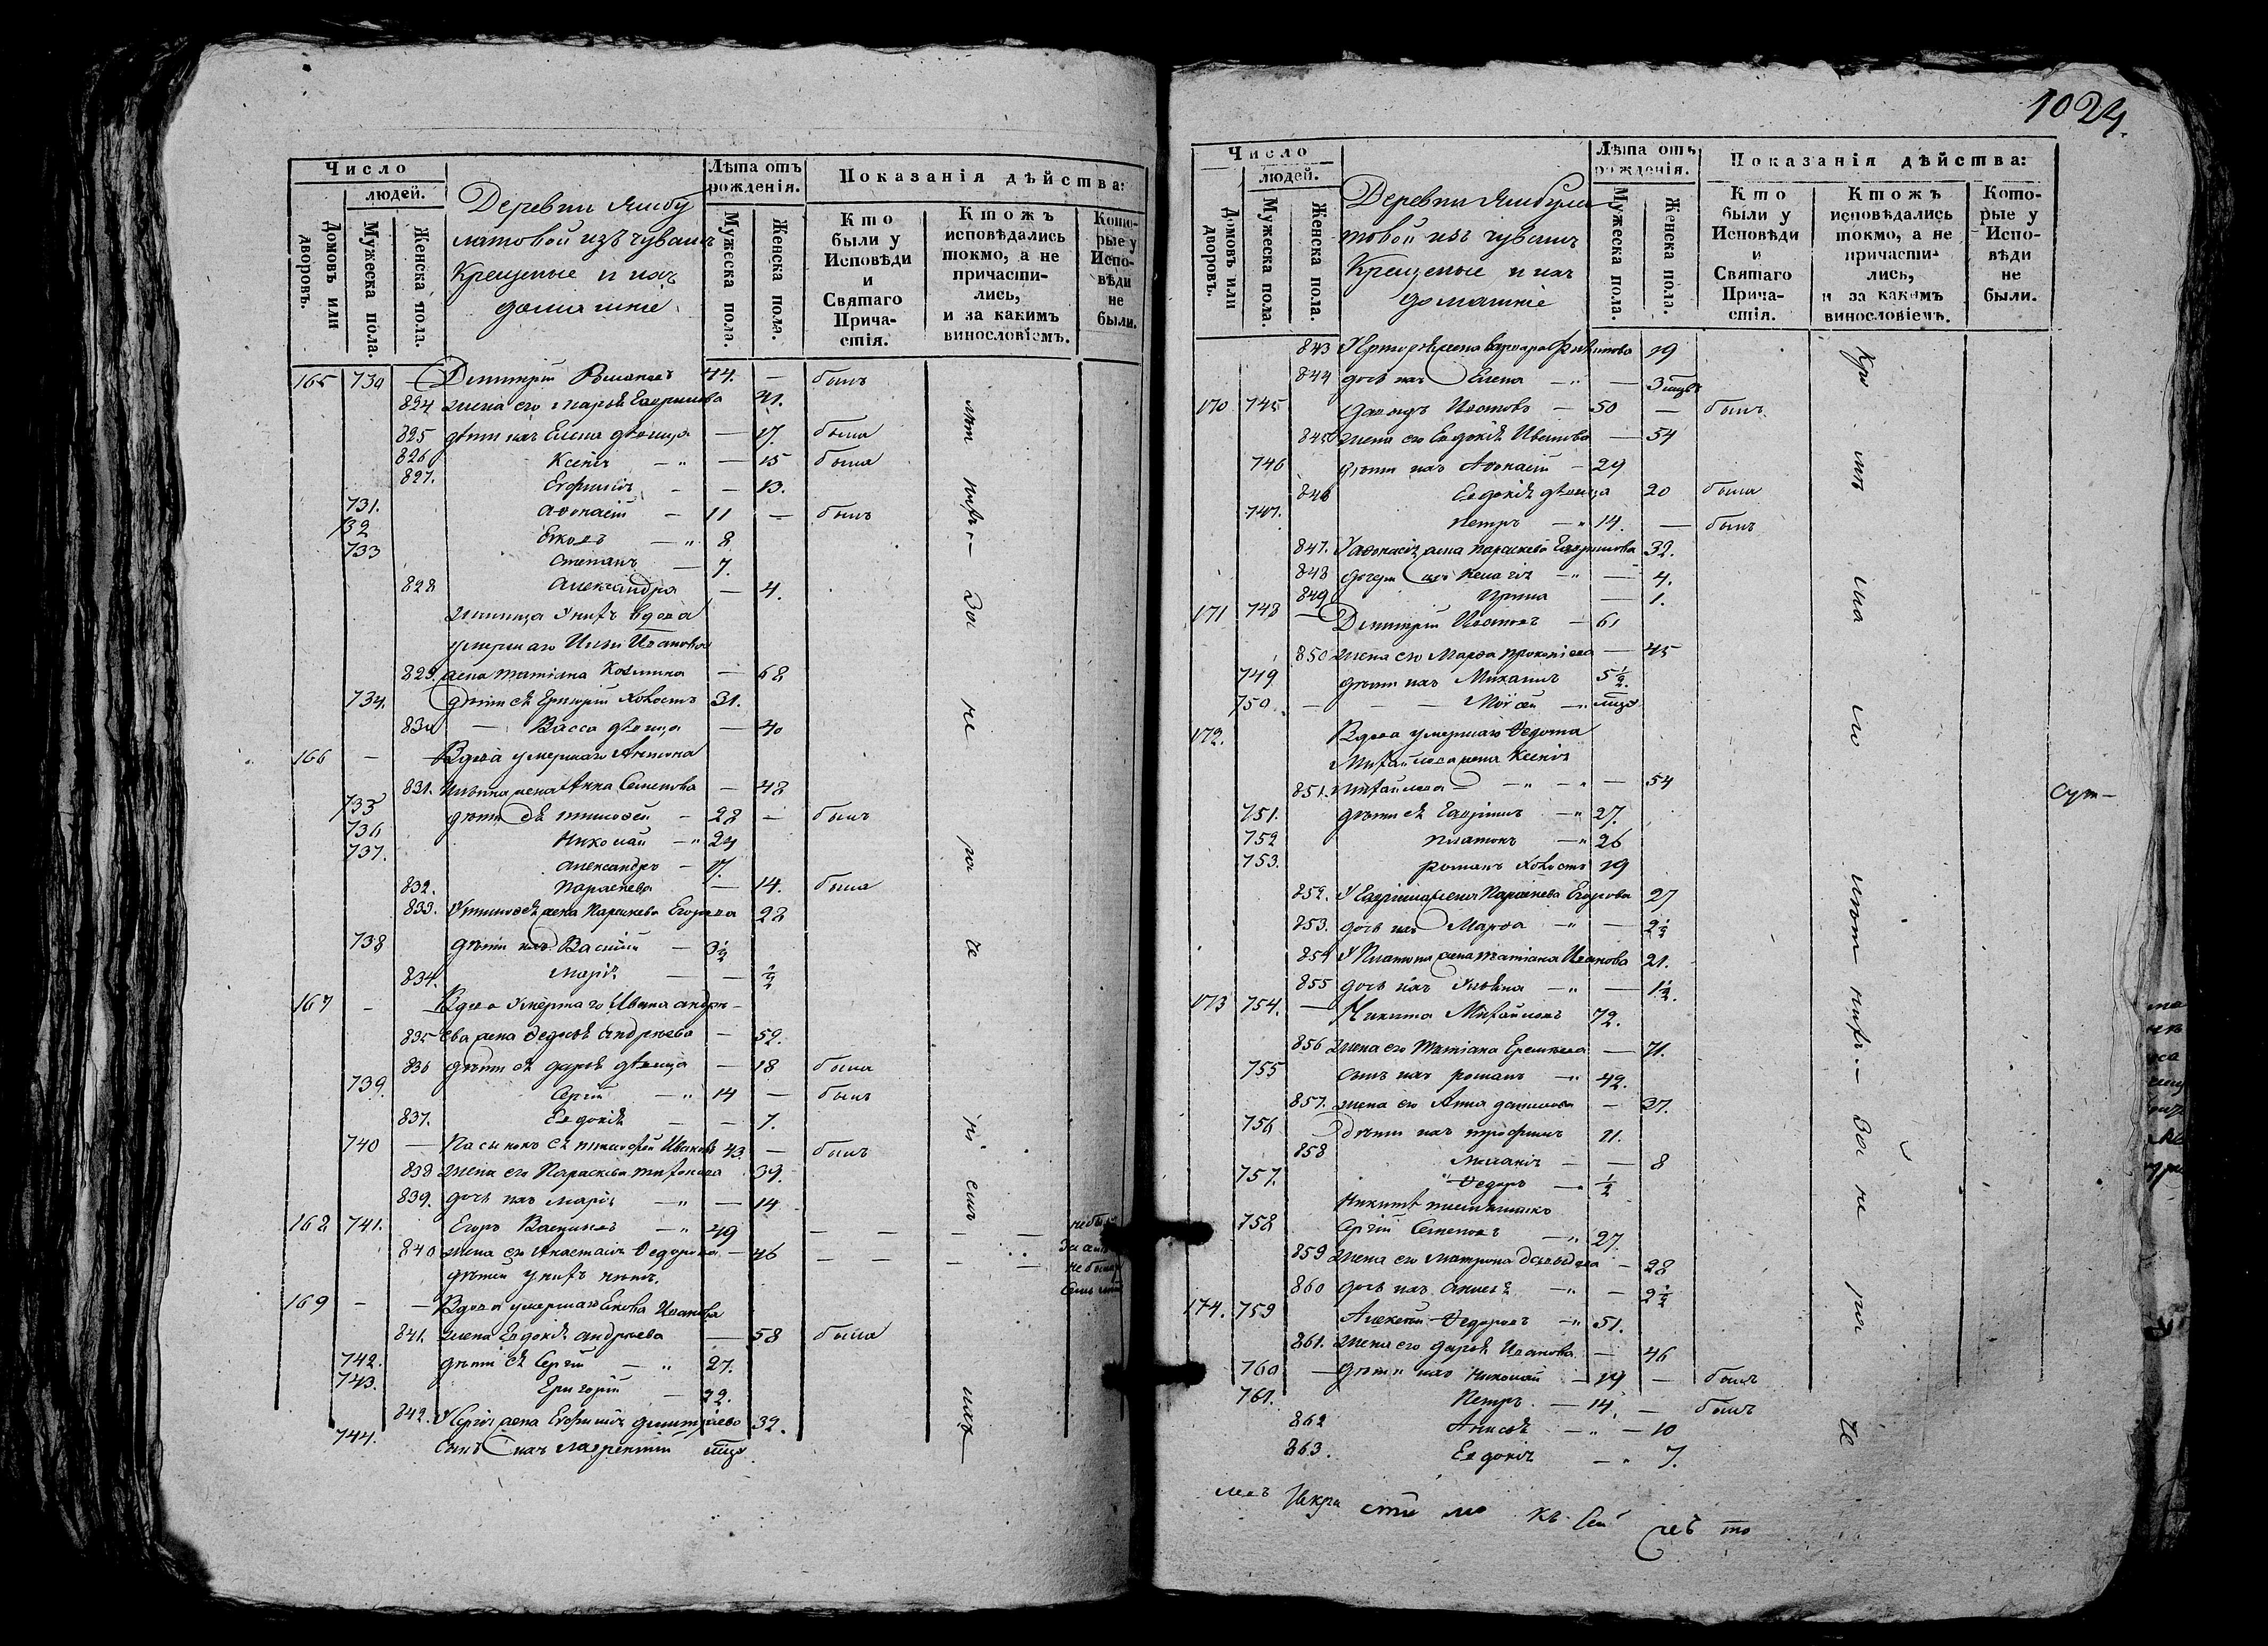 Число
людей.
Домовъ или дворовъ.
Мужеска пола.
Женска пола.
Деревни Ямбу
латовой изъ чувашъ
Крещеные и ихъ
домашніе
Лѣта отъ рожденія.
Мужеска пола.
Женска пола.
Показанія дѣйства:
Кто были у Исповѣди и Святаго Причастія.
Ктожъ исповѣдались токмо, а не причастились, и за какимъ винословіемъ.
Которые у Исповѣди не были.
165 730 — Димитрій 44. — былъ
824 жена его Марья Гаврилова 41.
825 дѣти ихъ Елена дѣвица — 17. была
826 Ксенія — " — 15 была
827. Евфимія — — 13.
731. Афонасій — 11 — былъ
732 Яковъ — " 8
733 Степанъ — 7.
828 Александра — 4.
у нихъ вдова
умершаго Ивановa
829. жена Татіана Козмина — 68
734. дѣти ея Григорій холостъ 31.
830 — Васса дѣвица — 40
166 — — Вдова умершаго Антона
831. Ильина жена Анна Семенова — 48
735 дѣти ея Тимофей — 28 — былъ
736 Николай — " 24
737. Александръ — 17.
832. Параскева — 14. была
833. У Тимофея жена Параскева Егорова 28
738 дѣти ихъ Василій — 3½
834. Марія — — ½
167 — — Вдова умершаго Ивана Андре-
835 ева жена Федосья Андреева — 59.
836 дѣти ея Дарья дѣвица — 18 была
739. Сергій — " 14 — былъ
837. Евдокія — — 7.
740 — Пасынокъ ея Тимофей Ивановъ 43. — былъ
838 жена его Параскева Тихонова 39.
839. дочь ихъ Марія — " — 14
168 741. Егоръ Васильевъ — " 49 — — — —
840 жена его Анастасія Федорова — 46 — — — —
дѣтей у нихъ нѣтъ.
169 — — Вдова умершаго Якова Иванова
841. жена Евдокія Андреева — 58 была
742. дѣти ея Сергій — " 27.
743. Григорій — 22.
842. У Сергія жена Евфимія Дмитріева 32.
744. сынъ ихъ Лаврентій
1024.
Число
людей.
Домовъ или дворовъ.
Мужеска пола.
Женска пола.
Деревни Ямбула
товой изъ чувашъ
Крещеные и ихъ
домашніе
Лѣта отъ рожденія.
Мужеска пола.
Женска пола.
Показанія дѣйства:
Кто были у Исповѣди и Святаго Причастія.
Ктожъ исповѣдались токмо, а не причастились, и за какимъ винословіемъ.
Которые у Исповѣди не были.
843 У Григорья жена Варвара 19
844 дочь ихъ Елена — " —
170 745 Давидъ Ивановъ — 50 — былъ
845 жена его Евдокія Иванова — 54
746 дѣти ихъ Афонасій — 29
846 Евдокія дѣвица 20 была
747. Петръ — " 14. — былъ
847. У Афонасія жена Параскева Гаврилова 32.
848 дочери ихъ Пелагія — " — 4.
849 Ирина — 1.
171 748 — Димитрій Ивановъ — 61
850 жена его Марфа Прокопіева — 45
749 дѣти ихъ Михаилъ 5½.
750. — — — Моисей — "
172. Вдова умершаго Федота
Михайлова жена Ксенія
851. Михайлова — " — " — 54
751. дѣти ея Гавріилъ — " 27.
752 Платонъ — " 26
753. Романъ холостъ 19
852. У Гавріила жена Параскева Егорова 27
853. дочь ихъ Марфа — " — 2½
854 У Платона жена Татіана Иванова 21.
855 дочь ихъ Ульяна — " — 1½.
173 754. — Никита Михайловъ 72.
856 жена его Татіана Еремеева — 71.
755 сынъ ихъ Романъ — " 42.
857. жена его Анна Данилова — 37.
756 дѣти ихъ Трофимъ 11.
858 Меланія — — 8
757. Федоръ — " ½
Никиты племянникъ
758 Сергій Семеновъ — " 27
859 жена его Матрона Давыдова — 28
860 дочь ихъ Анисья — " — 2½
174. 759 Алексѣй Федоровъ — " 51.
861. жена его Дарья Иванова — 46
760 — дѣти ихъ Николай — 19 — былъ
761. Петръ. — 14. — былъ
862 Анисья — " — 10
863. Евдокія — " 7.